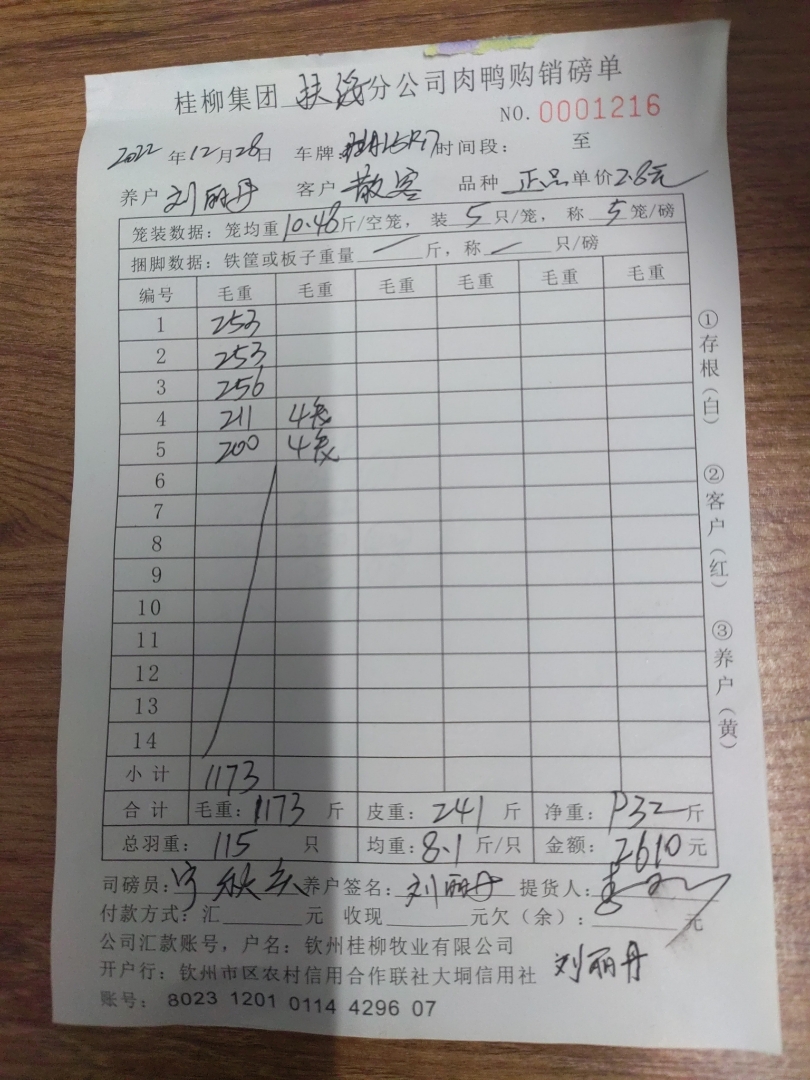 桂柳集团 扶绥 分公司肉鸭购销磅单
NO. 0001216
2022 年 12 月 28 日 车牌: 时间段: 至
养户 刘丽丹 客户 散客 品种 正品 单价 2.8元
笼装数据: 笼均重 10.48 斤/空笼, 装 5 只/笼, 称 5 笼/磅
捆脚数据: 铁筐或板子重量 — 斤, 称 — 只/磅
编号 毛重 毛重 毛重 毛重 毛重 毛重
1 253
2 253
3 256
4 211 4笼
5 200 4笼
6
7
8
9
10
11
12
13
14
小计 1173
合计 毛重: 1173 斤 皮重: 241 斤 净重: 932 斤
总羽重: 115 只 均重: 8.1 斤/只 金额: 2610 元
司磅员: 养户签名: 刘丽丹 提货人:
付款方式: 汇 元 收现 元欠(余): 元
公司汇款账号, 户名: 钦州桂柳牧业有限公司
开户行: 钦州市区农村信用合作联社大垌信用社 刘丽丹
账号: 8023 1201 0114 4296 07
①存根(白)
②客户(红)
③养户(黄)